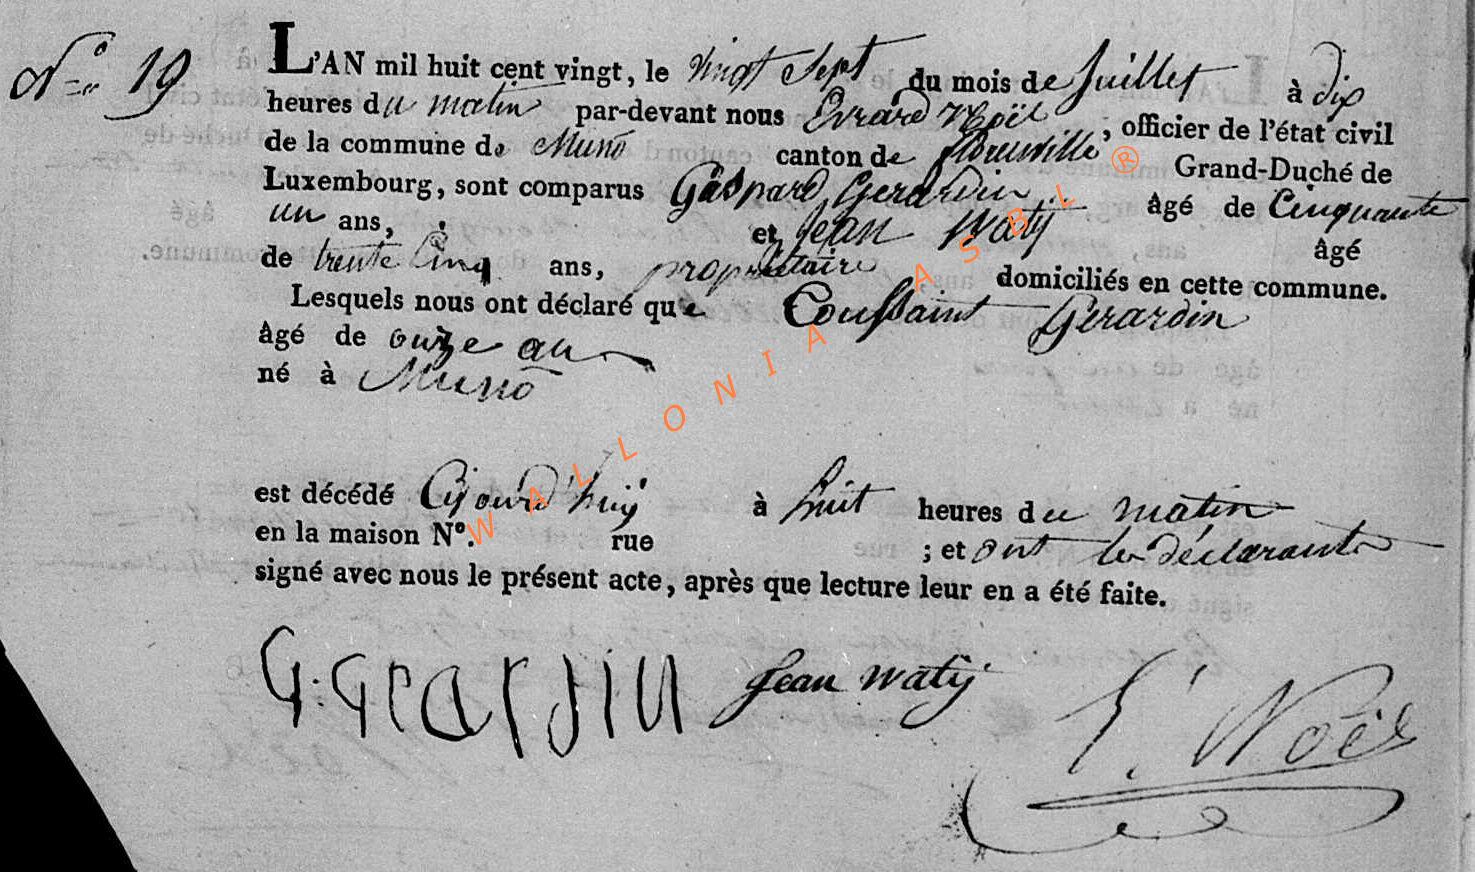 No. 19
L'AN mil huit cent vingt, le vingt sept du mois de Juillet à dix
heures du matin par-devant nous Evrard Noël, officier de l'état civil
de la commune de Muno canton de florenville Grand-Duché de
Luxembourg, sont comparus Gaspard Gerardin âgé de Cinquante
un ans, et Jean Watij âgé
de trente Cinq ans, propriétaire domiciliés en cette commune.
Lesquels nous ont déclaré que Toussaint Gerardin
âgé de onze an
né à Muno
est décédé Cejourd'huy à huit heures du matin
en la maison N°. rue ; et ont les déclarants
signé avec nous le présent acte, après que lecture leur en a été faite.
G. Gerardin Jean watij E. Noël
WALLONIA ASBL ®